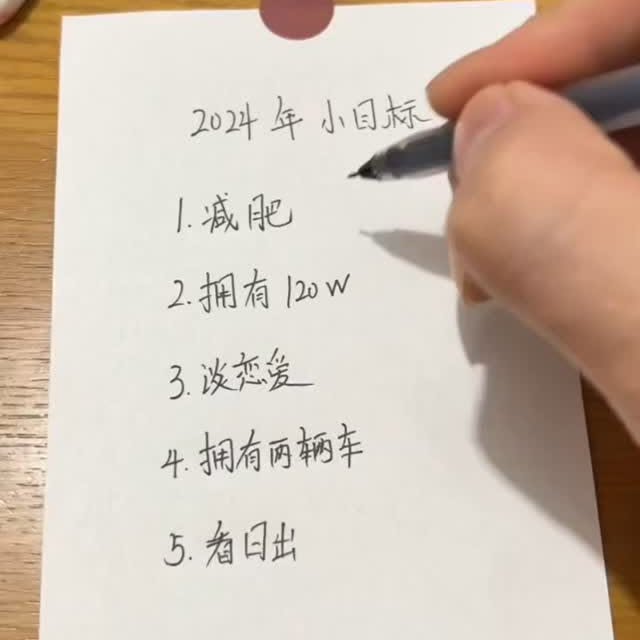 2024年 小目标
1. 减肥
2. 拥有120W
3. 谈恋爱
4. 拥有两辆车
5. 看日出